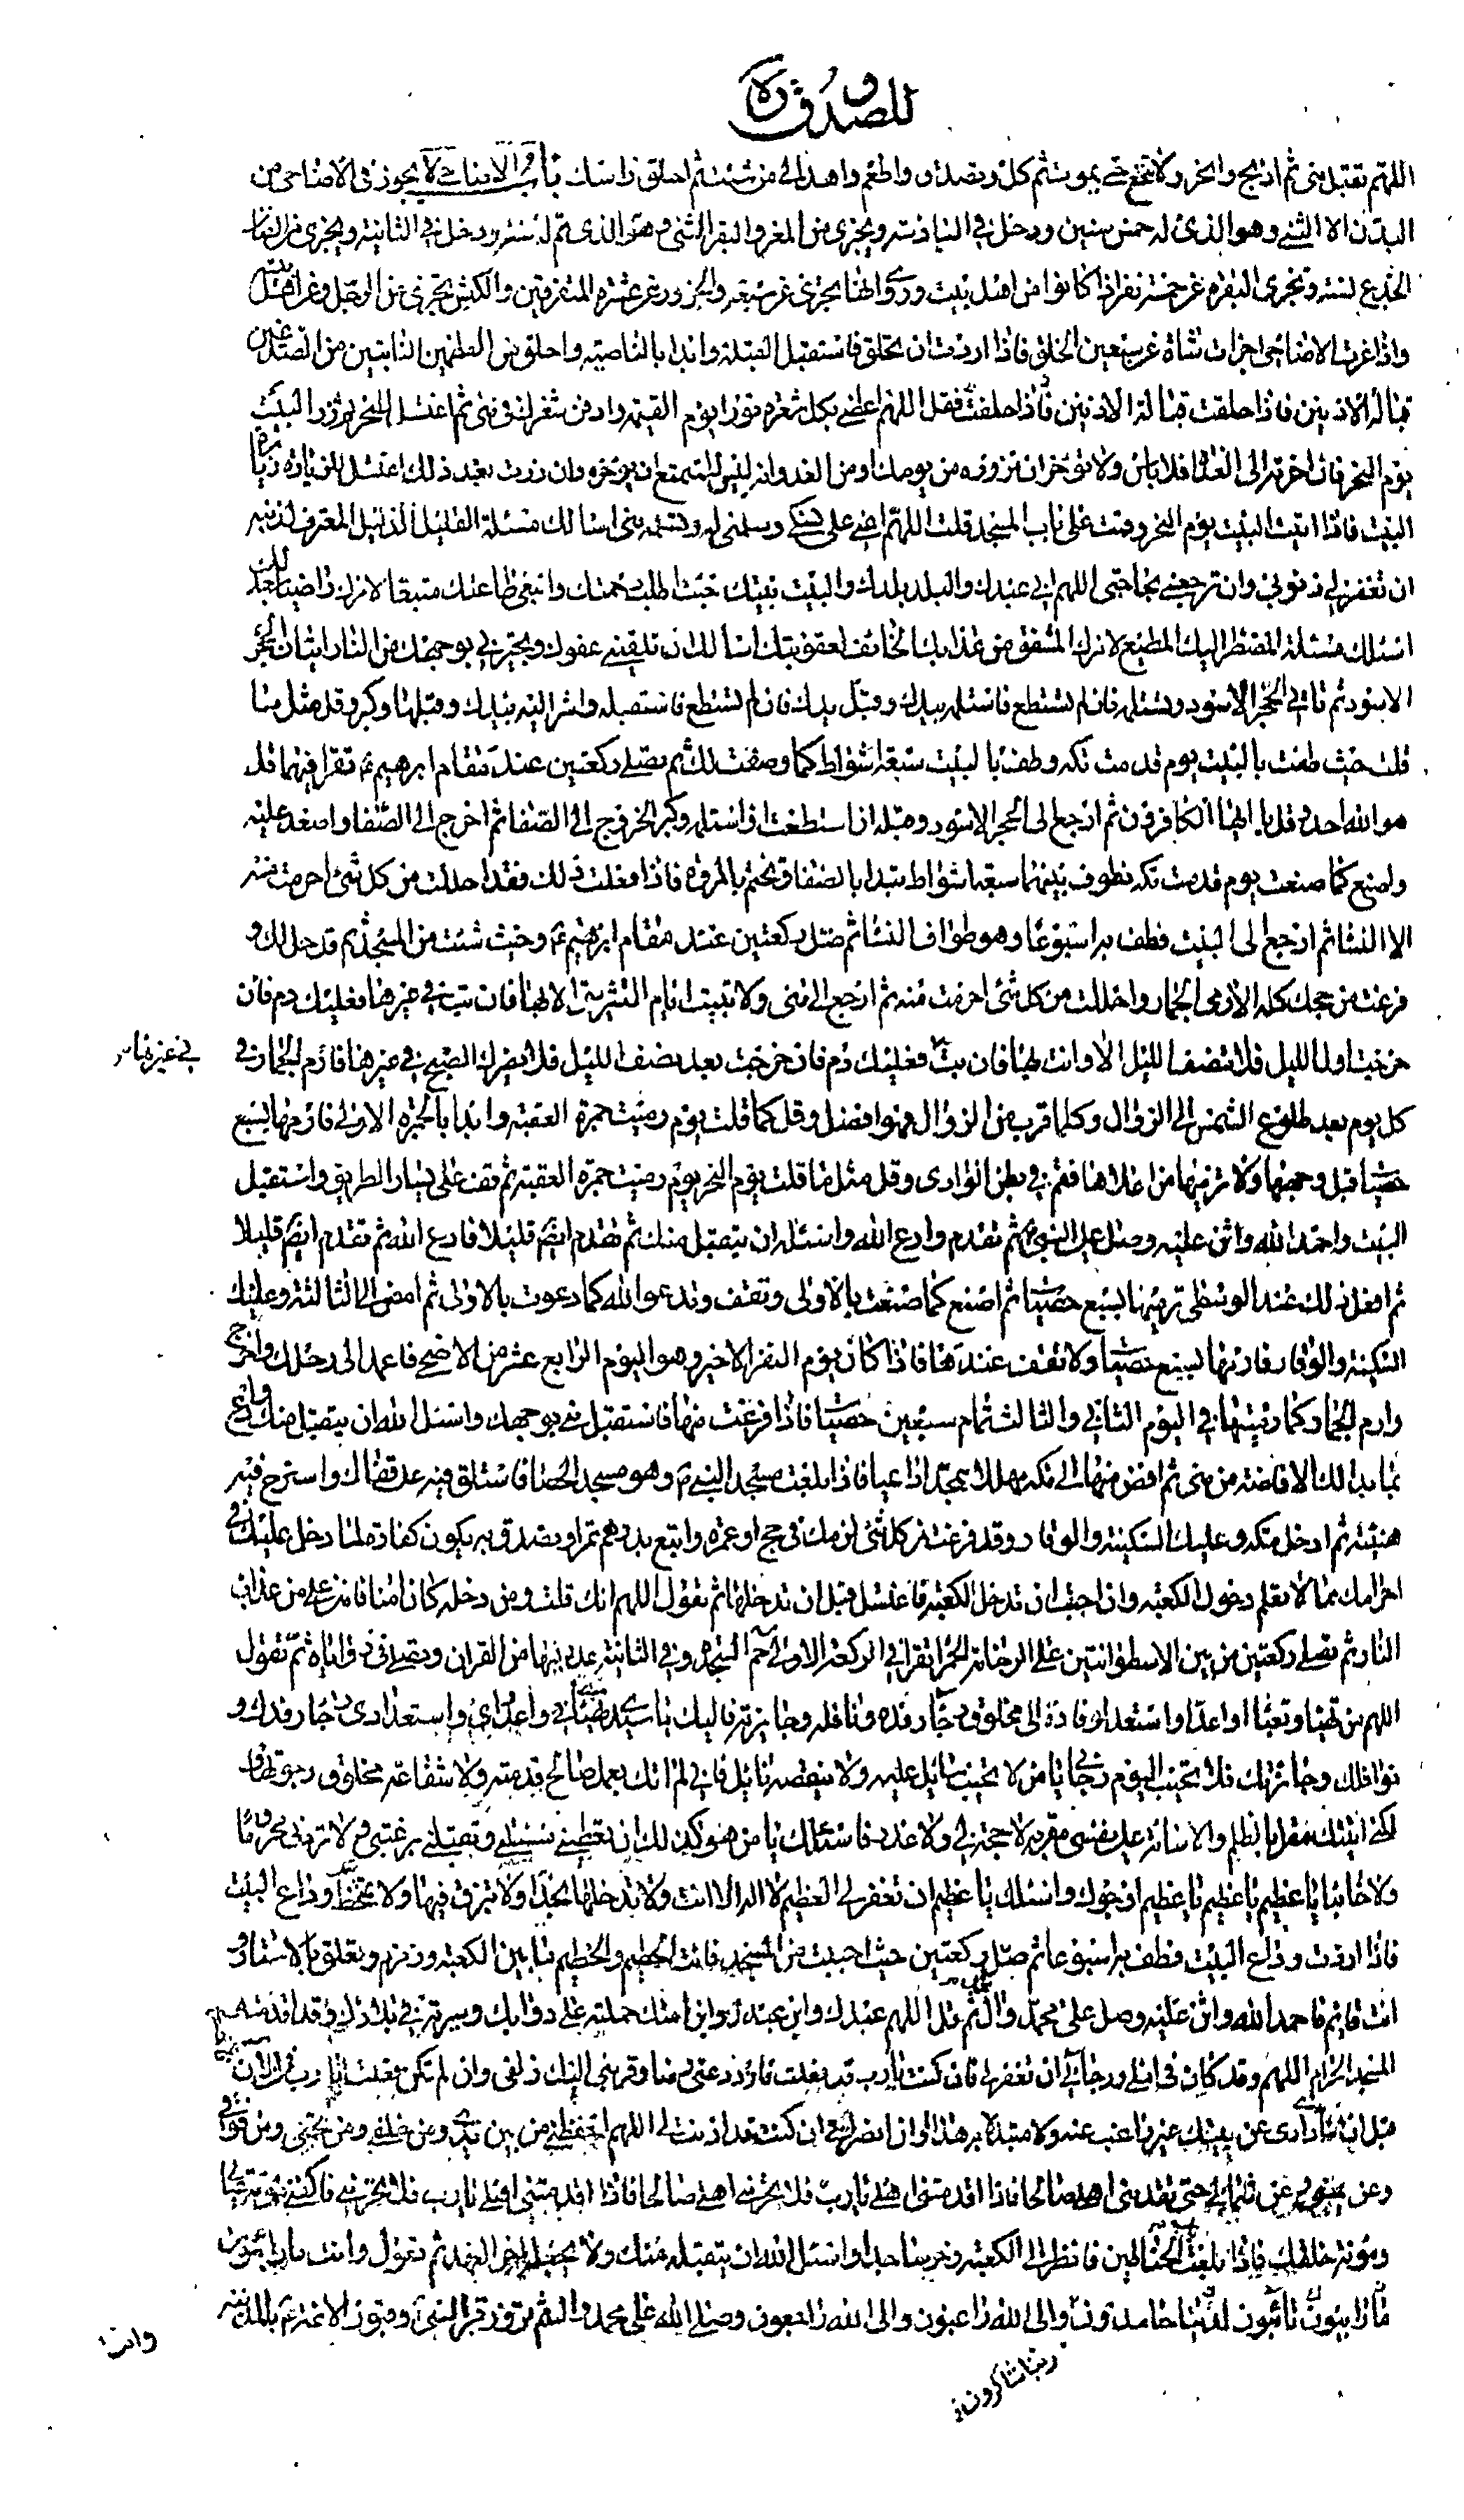 للصدوق ره
اللهم تقبل مني ثم اذبح وانحر ولا تنخع حتى يموت ثم كل وتصدق واطعم واهد الى من شئت ثم احلق راسك باب الاضاحي لا يجوز في الاضاحي من
البدن الا الثني وهو الذي له خمس سنين ودخل في السادسة ويجزي من المعز والبقر الثني وهو الذي تم له سنة ودخل في الثانية ويجزي من الضان
الجذع لسنة وتجزى البقرة عن خمسة نفر اذا كانوا من اهل بيت وروى انها تجزي عن سبعة والجزور عن عشرة المتفرقين والكبش يجزي عن الرجل وعن اهل بيته
واذا عزت الاضاحي اجزات شاة عن سبعين الحلق فاذا اردت ان تحلق فاستقبل القبلة وابدا بالناصية واحلق من العظمين النابتين من الصدغين
قبالة الاذنين فاذا حلقت فقل اللهم اعطني بكل شعرة نورا يوم القيمة وادفن شعرك في منى ثم اغتسل للنحر وزر البيت
يوم النحر فان اخرته الى الغد فلا باس ولا تؤخر ان تزوره من يومك او من الغد وانه ليس للمتمتع ان يؤخره وان زرت بعد ذلك اغتسل للزيارة زيارة
البيت فاذا اتيت البيت يوم النحر وقمت على باب المسجد قلت اللهم اعني على نسكي وسلمني له وتسلمه مني اسالك مسئلة القليل الذليل المعترف بذنبه
ان تغفر لي ذنوبي وان ترجعني بحاجتي اللهم اني عبدك والبلد بلدك والبيت بيتك جئت اطلب رحمتك وابتغي طاعتك متبعا لامرك راضيا بعدلك
اسئلك مسئلة المضطر اليك المطيع لامرك المشفق من عذابك الخائف لعقوبتك اسالك ان تلقيني عفوك وتجيرني بوجهك من النار اتيان الحجر
الاسود ثم تاتي الحجر الاسود وتستلمه فان لم تستطع فاستلمه بيدك وقبل يدك فان لم تستطع فاستقبله واشر اليه بيدك وقبلها وكبر وقل مثل ما
قلت حيث طفت بالبيت يوم قدمت مكة وطفت بالبيت سبعة اشواط كما وصفت لك ثم تصلي ركعتين عند مقام ابرهيم ع تقرا فيهما قل
هو الله احد وقل يا ايها الكافرون ثم ارجع الى الحجر الاسود وقبله ان استطعت او استلمه وكبر الخروج الى الصفا ثم اخرج الى الصفا واصعد عليه
واصنع كما صنعت يوم قدمت مكة تطوف بينهما سبعة اشواط تبدا بالصفا وتختم بالمروة فاذا فعلت ذلك فقد احللت من كل شئ احرمت منه
الا النسا ثم ارجع الى البيت فطف به اسبوعا وهو طواف النسا ثم صل ركعتين عند مقام ابرهيم ع وحيث شئت من المسجد ثم قد حل لك و
فرغت من حجك كله الا رمي الجمار واحللت من كل شئ احرمت منه ثم ارجع الى منى ولا تبيت ايام التشريق الا بها فان بت في غيرها فعليك دم فان
خرجت اول الليل فلا تنتصف الليل الا وانت بها فان بت فعليك دم فان خرجت بعد نصف الليل فلا يضرك الصبح في غيرها فارم الجمار في
في غيرها
كل يوم بعد طلوع الشمس الى الزوال وكلما قرب من الزوال فهو افضل وقل كما قلت يوم رميت جمرة العقبة وابدا بالجمرة الاولى فارمها بسبع
حصيات قبل وجهها ولا ترميها من اعلاها فقم في بطن الوادي وقل مثل ما قلت يوم النحر يوم رميت جمرة العقبة ثم قف على يسار الطريق واستقبل
البيت واحمد الله واثن عليه وصل على النبي ثم تقدم وادع الله واسئله ان يتقبل منك ثم تقدم ايضا قليلا فادع الله ثم تقدم ايضا قليلا
ثم افعل ذلك عند الوسطى ترميها بسبع حصيات ثم اصنع كما صنعت بالاولى وتقف وتدعوا الله كما دعوت بالاولى ثم امض الى الثالثة وعليك
السكينة والوقار فارمها بسبع حصيات ولا تقف عندها فاذا كان يوم النفر الاخير وهو اليوم الرابع عشر من الاضحى فاعمد الى رحلك واخرج
وارم الجمار كما رميتها في اليوم الثاني والثالث تمام سبعين حصيات فاذا فرغت منها فاستقبل منى بوجهك واسئل الله ان يتقبل منك وادع
بما بدا لك الافاضة من منى ثم افض منها الى مكة مهللا ممجدا داعيا فاذا بلغت مسجد النبي ص وهو مسجد الحصا فاستلق فيه على قفاك واسترح فيه
هنيئة ثم ادخل مكة وعليك السكينة والوقار وقد فرغت من كل شئ لزمك في حج او عمرة وابتع بدرهم تمرا وتصدق به يكون كفارة لما دخل عليك في
احرامك مما لا تعلم دخول الكعبة وان احببت ان تدخل الكعبة فاغتسل قبل ان تدخلها ثم تقول اللهم انك قلت ومن دخله كان امنا فامني من عذاب
النار ثم تصلي ركعتين من بين الاسطوانتين على الرخامة الحمرا تقرا في الركعة الاولى حم السجدة وفي الثانية عدد ايها من القران وتصلي في زواياه ثم تقول
اللهم من تهيا وتعبا او اعد واستعد لوفادة الى مخلوق رجاء رفده ونوافله وجايزته فاليك يا سيدي تهيئتي واعدادي واستعدادي رجاء رفدك و
نوافلك وجائزتك فلا تخيب اليوم رجائي يا من لا يخيب سائل عليه ولا ينقصه نايل فاني لم اتك بعمل صالح قدمته ولا شفاعة مخلوق رجوتها
لكني اتيتك مقرا بالظلم والاسائة على نفسي مقر به لا حجة لي ولا عذر فاسئلك يا من هو كذلك ان تعطيني مسئلتي وتقبلني برغبتي ولا تردني محروما
ولا خائبا يا عظيم يا عظيم يا عظيم ارجوك واسئلك يا عظيم ان تغفر لي العظيم لا اله الا انت ولا تدخلها بحذاء ولا تبزق فيها ولا تمتخط وداع البيت
فاذا اردت وداع البيت فطف به اسبوعا ثم صل ركعتين حيث احببت من المسجد فائت الحطيم والحطيم ما بين الكعبة وزمزم وتعلق بالاستار و
انت قايم فاحمد الله واثن عليه وصل على محمد واله ثم قل اللهم عبدك وابن عبدك وابن امتك حملته على دوابك وسيرته في بلادك وقد اقدمته
المسجد الحرام اللهم وقد كان في املي ورجائي ان تغفر لي فان كنت يا رب قد فعلت فازدد عني رضا وقربني اليك زلفى وان لم تكن فعلت يا رب فمن الان
قبل ان تناى داري عن بيتك غير راغب عنه ولا مستبدل به هذا اوان انصرافي ان كنت قد اذنت لي اللهم احفظني من بين يدي ومن خلفي ومن تحتي ومن فوقي
وعن يميني وعن شمالي حتى تقدمني اهلي صالحا فاذا اقدمتني اهلي يا رب فلا
ومؤنة خلقك فاذا بلغت باب الحناطين فانظر الى الكعبة وخر ساجدا واسئل الله ان يتقبله منك ولا يجعله اخر العهد ثم تقول وانت مار ائبون
تائبون لربنا حامدون والى الله راغبون والى الله راجعون وصلى الله على محمد واله ثم تزور قبر النبي وقبور الائمة ع بالمدينة
ربنا شاكرون
وانت